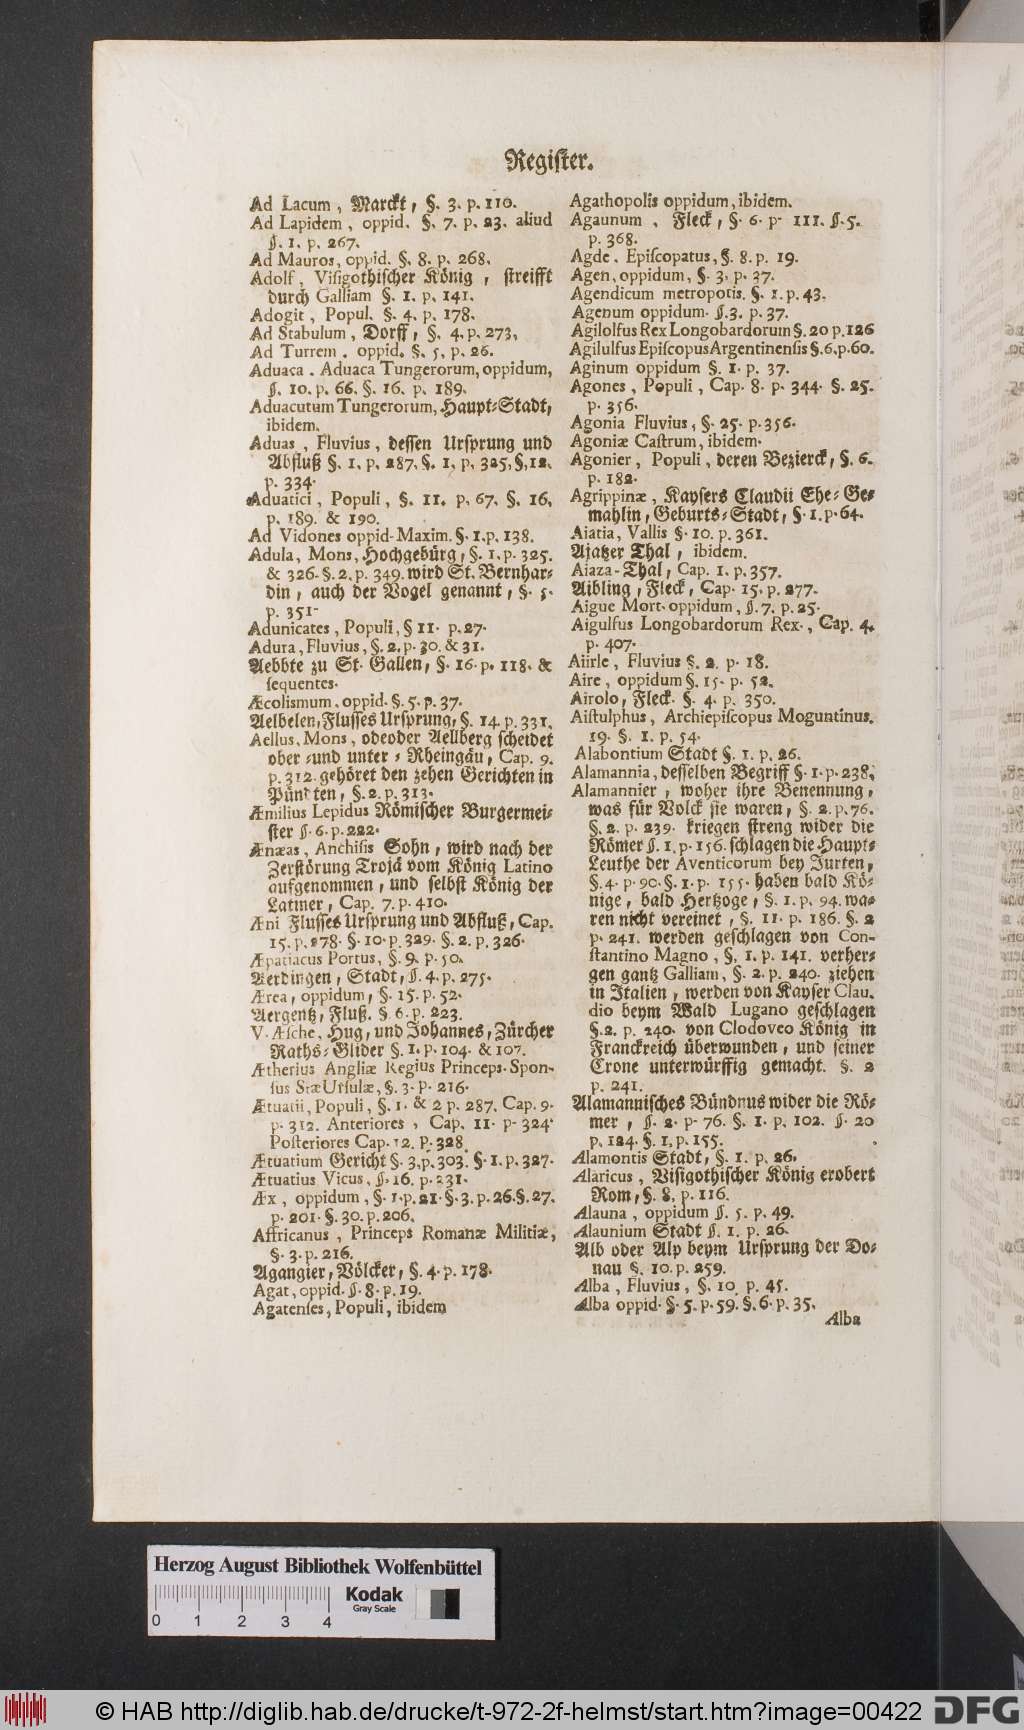 Regiſter.
Ad Lacum, Marckt, §. 3. p. 110.
Ad Lapidem, oppid. §. 7. p. 23. aliud
§. 1. p. 267.
Ad Mauros, oppid. §. 8. p. 268.
Adolf, Viſigothiſcher König, ſtreifft
durch Galliam §. 1. p. 141.
Adogit, Popul. §. 4. p. 178.
Ad Stabulum, Dorff, §. 4. p. 273.
Ad Turrem, oppid. §. 5. p. 26.
Aduaca. Aduaca Tungerorum, oppidum,
§. 10. p. 66. §. 16. p. 189.
Aduacutum Tungerorum, Haupt-Stadt,
ibidem.
Aduas, Fluvius, deſſen Urſprung und
Abfluß §. 1. p. 287. §. 1. p. 325. §. 12.
p. 334.
Aduatici, Populi, §. 11. p. 67. §. 16.
p. 189. & 190.
Ad Vidones oppid. Maxim. §. 1. p. 138.
Adula, Mons, Hochgebürg, §. 1. p. 325.
& 326. §. 2. p. 349. wird St. Bernhar-
din, auch der Vogel genannt, §. 5.
p. 351.
Adunicates, Populi, § 11. p. 27.
Adura, Fluvius, §. 2. p. 30. & 31.
Aebbte zu St. Gallen, §. 16. p. 118. &
ſequentes.
Æcolismum, oppid. §. 5. p. 37.
Aelbelen, Fluſſes Urſprung, §. 14. p. 331.
Aellus, Mons, odeoder Aellberg ſcheidet
ober- und unter-Rheingäu, Cap. 9.
p. 312. gehöret den zehen Gerichten in
Pündten, §. 2. p. 313.
Æmilius Lepidus Römiſcher Burgermei-
ſter §. 6. p. 222.
Ænæas, Anchiſis Sohn, wird nach der
Zerſtörung Trojä vom König Latino
aufgenommen, und ſelbſt König der
Latiner, Cap. 7. p. 410.
Æni Fluſſes Urſprung und Abfluß, Cap.
15. p. 278. §. 10. p. 329. §. 2. p. 326.
Æpatiacus Portus, §. 9. p. 50.
Aerdingen, Stadt, §. 4. p. 275.
Ærea, oppidum, §. 15. p. 52.
Aergentz, Fluß. § 6. p. 223.
V. Æſche, Hug, und Johannes, Zürcher
Raths-Glider §. 1. p. 104. & 107.
Ætherius Angliæ Regius Princeps. Spon-
ſus StæUrſulæ, §. 3. p. 216.
Ætuatii, Populi, §. 1. & 2 p. 287. Cap. 9.
p. 312. Anteriores, Cap. 11. p. 324.
Poſteriores Cap. 12. p. 328.
Ætuatium Gericht §. 3. p. 303. §. 1. p. 327.
Ætuatius Vicus, §. 16. p. 231.
Æx, oppidum, §. 1. p. 21. §. 3. p. 26. §. 27.
p. 201. §. 30. p. 206.
Affricanus, Princeps Romanæ Militiæ,
§. 3. p. 216.
Agangier, Völcker, §. 4. p. 178.
Agat, oppid. §. 8. p. 19.
Agatenſes, Populi, ibidem
Agathopolis oppidum, ibidem.
Agaunum, Fleck, §. 6. p. 111. §. 5.
p. 368.
Agde, Epiſcopatus, §. 8. p. 19.
Agen, oppidum, §. 3. p. 37.
Agendicum metropotis. §. 1. p. 43.
Agenum oppidum. §. 3. p. 37.
Agilolfus Rex Longobardorum §. 20 p. 126
Agilulfus Epiſcopus Argentinenſis §. 6. p. 60.
Aginum oppidum §. 1. p. 37.
Agones, Populi, Cap. 8. p. 344. §. 25.
p. 356.
Agonia Fluvius, §. 25. p. 356.
Agoniæ Caſtrum, ibidem.
Agonier, Populi, deren Bezierck, §. 6.
p. 182.
Agrippinæ, Kayſers Claudii Ehe-Ge-
mahlin, Geburts-Stadt, §. 1. p. 64.
Aiatia, Vallis §. 10. p. 361.
Ajatzer Thal, ibidem.
Aiaza-Thal, Cap. 1. p. 357.
Aibling, Fleck, Cap. 15. p. 277.
Aigue Mort. oppidum, §. 7. p. 25.
Aigulſus Longobardorum Rex., Cap. 4.
p. 407.
Aiirle, Fluvius §. 2. p. 18.
Aire, oppidum §. 15. p. 52.
Airolo, Fleck. §. 4. p. 350.
Aiſtulphus, Archiepiſcopus Moguntinus.
19. §. 1. p. 54.
Alabontium Stadt §. 1. p. 26.
Alamannia, deſſelben Begriff §. 1. p. 238.
Alamannier, woher ihre Benennung,
was für Volck ſie waren, §. 2. p. 76.
§. 2. p. 239. kriegen ſtreng wider die
Römer §. 1. p. 156. ſchlagen die Haupt-
Leuthe der Aventicorum bey Jurten,
§. 4. p. 90. §. 1. p. 155. haben bald Kö-
nige, bald Hertzoge, §. 1. p. 94. wa-
ren nicht vereinet, §. 11. p. 186. §. 2
p. 241. werden geſchlagen von Con-
ſtantino Magno, §. 1. p. 141. verher-
gen gantz Galliam, §. 2. p. 240. ziehen
in Italien, werden von Kayſer Clau.
dio beym Wald Lugano geſchlagen
§. 2. p. 240. von Clodoveo König in
Franckreich überwunden, und ſeiner
Crone unterwürffig gemacht. §. 2
p. 241.
Alamanniſches Bündnus wider die Rö-
mer, §. 2. p. 76. §. 1. p. 102. §. 20
p. 124. §. 1. p. 155.
Alamontis Stadt, §. 1. p. 26.
Alaricus, Viſigothiſcher König erobert
Rom, §. 8. p. 116.
Alauna, oppidum §. 5. p. 49.
Alaunium Stadt §. 1. p. 26.
Alb oder Alp beym Urſprung der Do-
nau §. 10. p. 259.
Alba, Fluvius, §. 10. p. 45.
Alba oppid. §. 5. p. 59. §. 6. p. 35.
Alba
Herzog August Bibliothek Wolfenbüttel
0 1 2 3 4
Kodak
Gray Scale
© HAB http://diglib.hab.de/drucke/t-972-2f-helmst/start.htm?image=00422
DFG